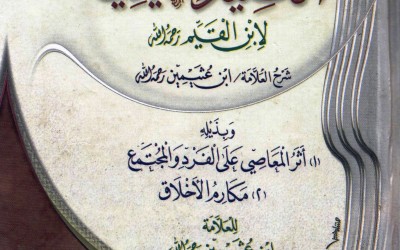 لِابْنِ القَيِّم رَحِمَهُ اللّٰه
شَرْحُ العَلَّامَة / ابْنِ عُثَيْمِين رَحِمَهُ اللّٰه
وَبِذَيْلِهِ
(١) أَثَرُ المَعَاصِي عَلَى الفَرْدِ وَالمُجْتَمَعِ
(٢) مَكَارِمُ الأَخْلَاقِ
لِلعَلَّامَةِ